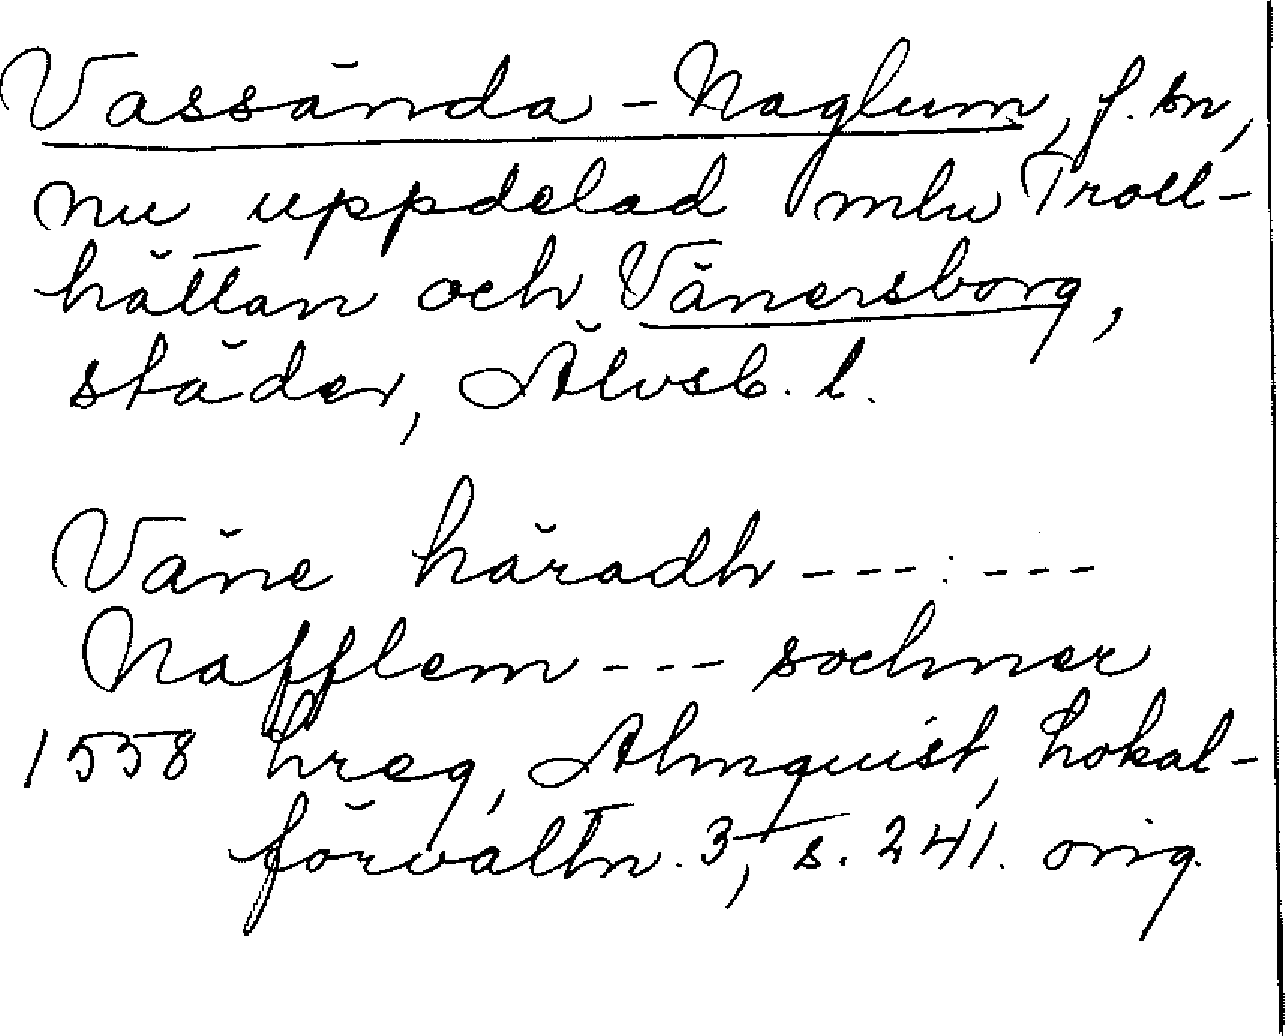 Vassända-Naglum, f. sn,
nu uppdelad mlu Troll-
hättan och Vänersborg,
städer, Älvsb. l.
Väne häradh ---:---
Nafflem --- sochner
1558 hreg, Almquist, Lokal-
förvaltn. 3, s. 241. orig.